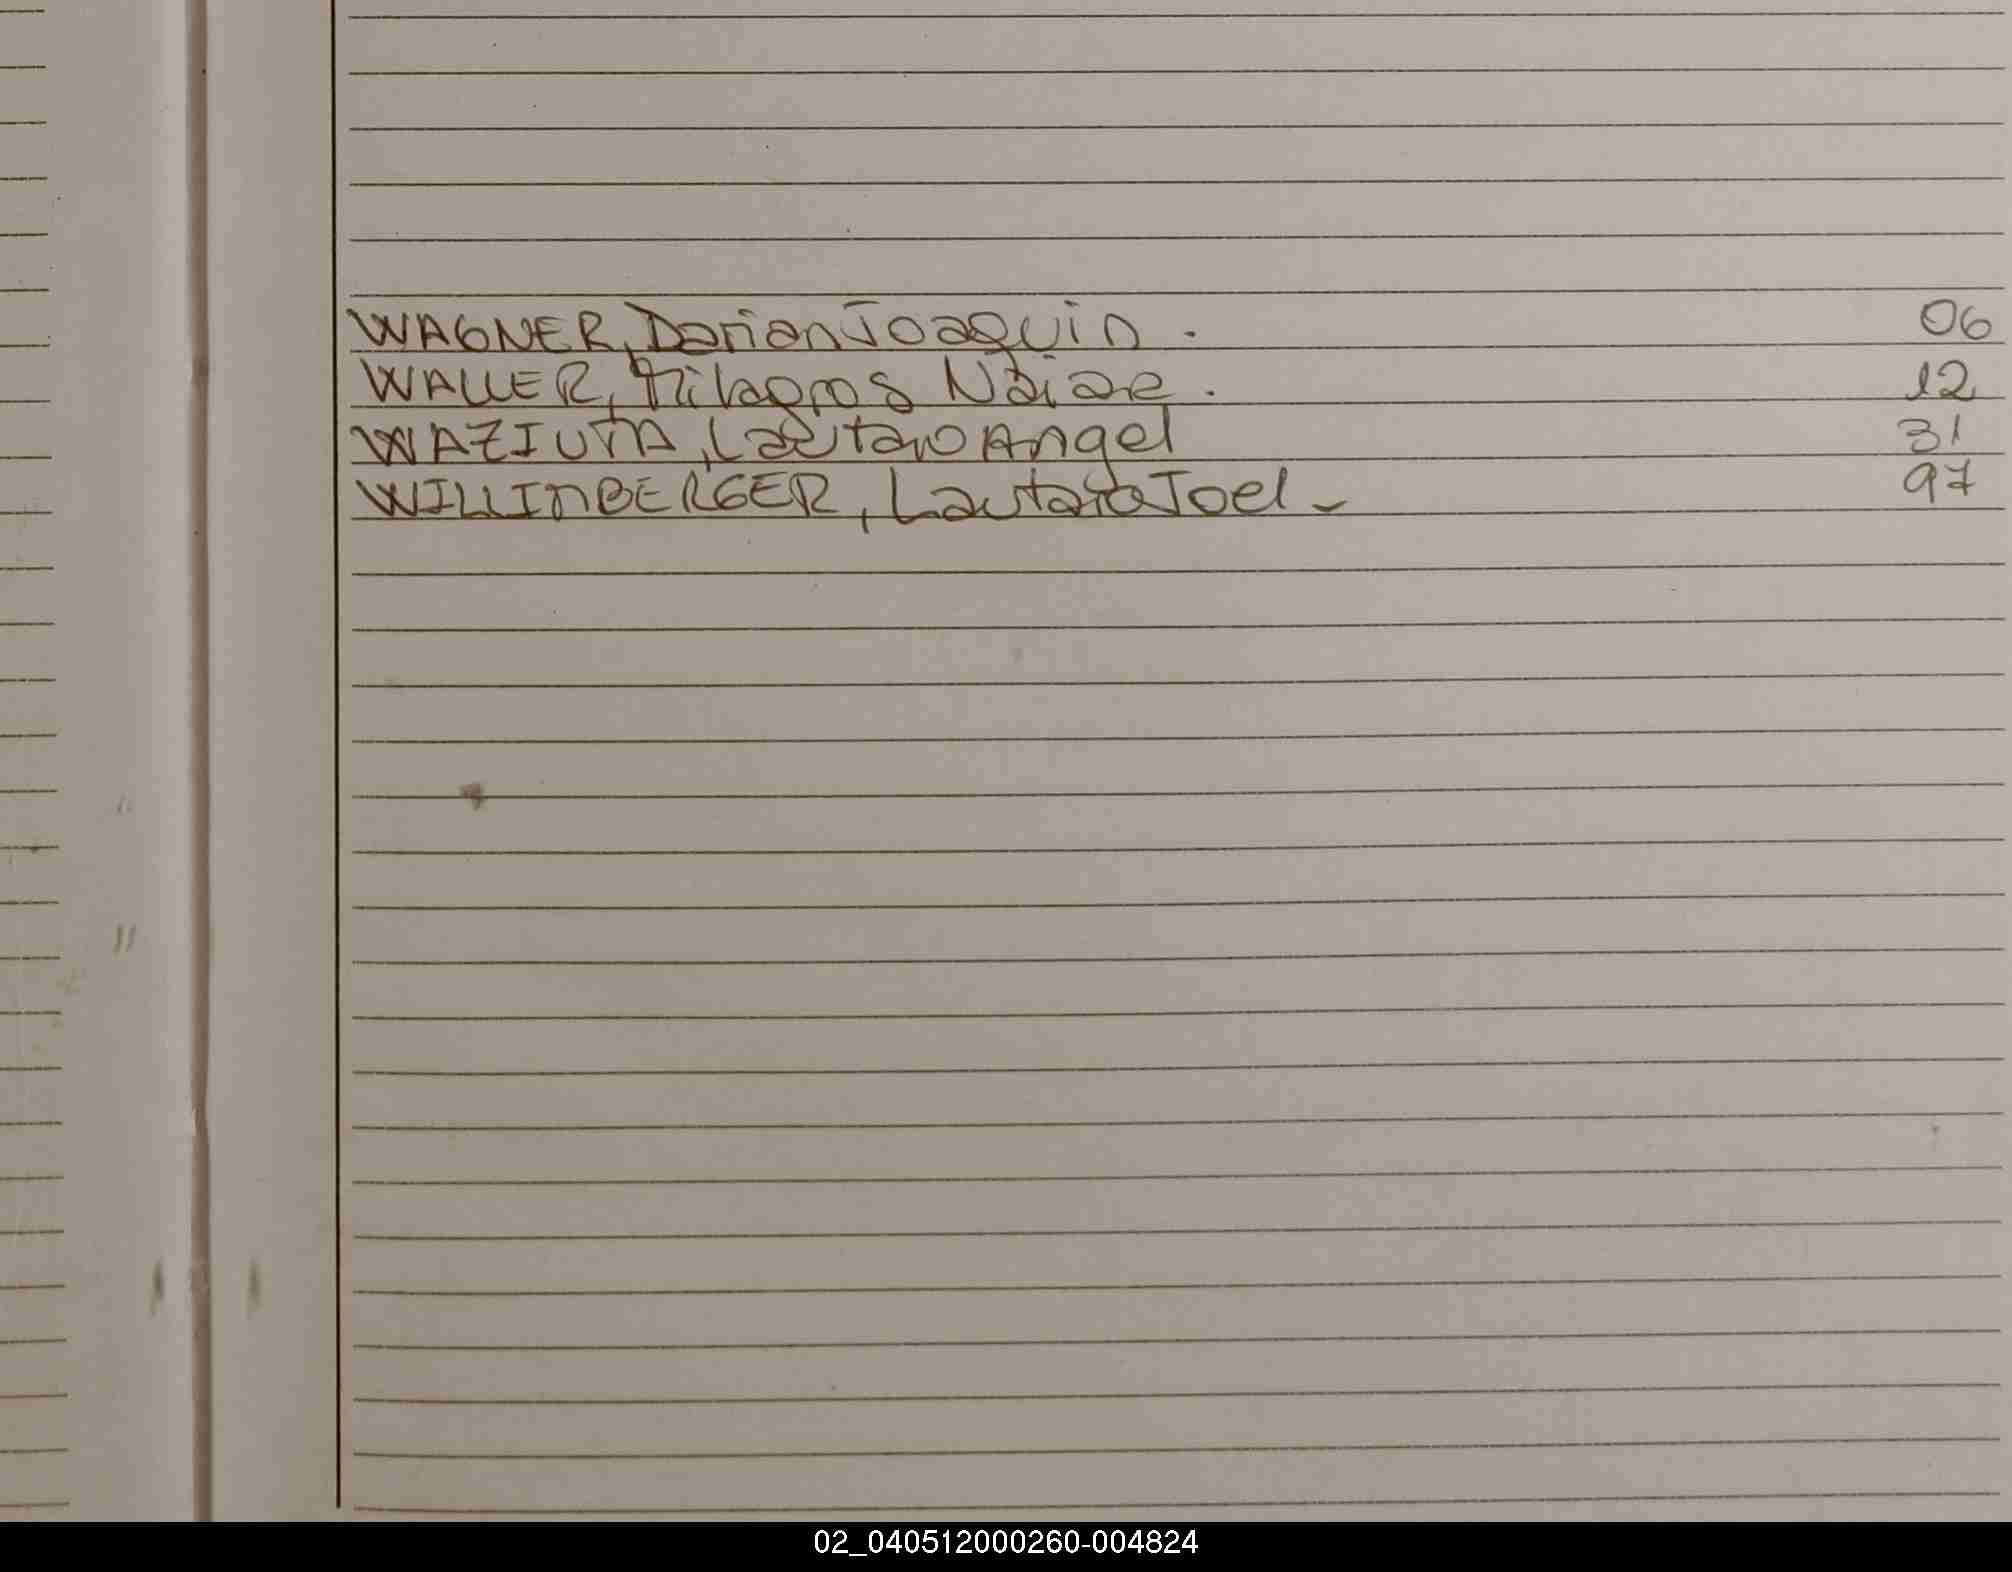 WAGNER, Darian Joaquin. 06
WALLER, Milagros Naiae. 12
WAZIUTA, Lautaro Angel 31
WILLIMBERGER, Lautaro Joel - 97
02_040512000260-004824